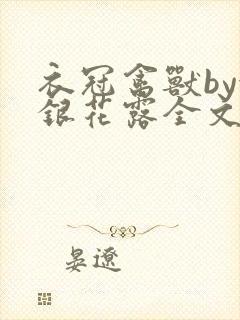 衣冠禽獸by
銀花露全文
晏遼